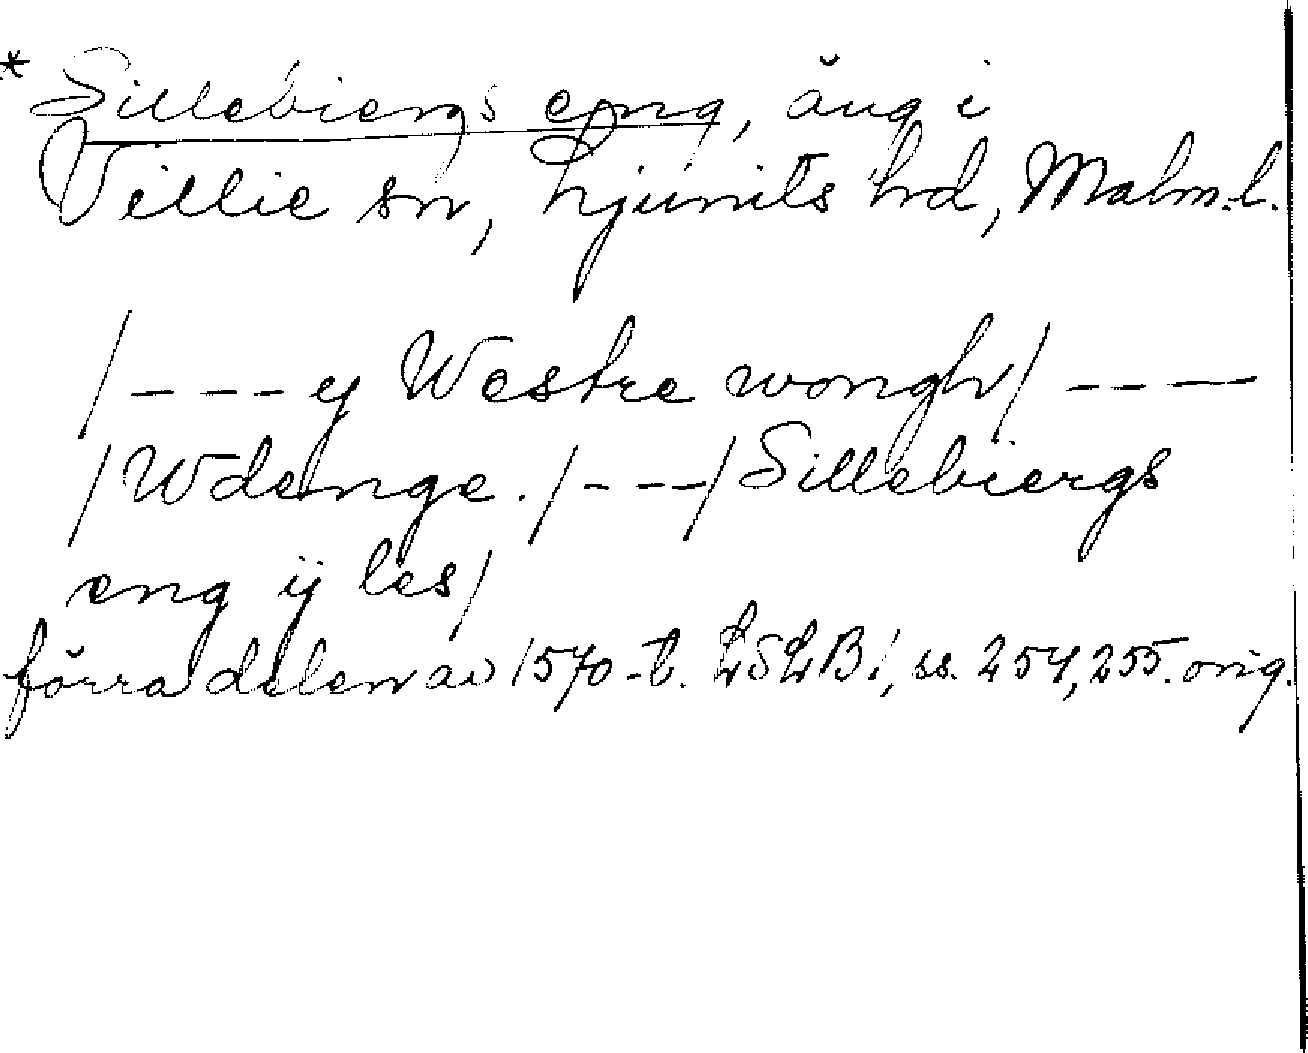 * Sillebiergs eng, äng i
Villie sn, Ljunits hd, Malm.l.
/---y Westre wongh/----
/Wdenge./---/Sillebiergs
eng ij les/
förra delen av 1570-t. LSLB1, ss. 254, 255. orig.